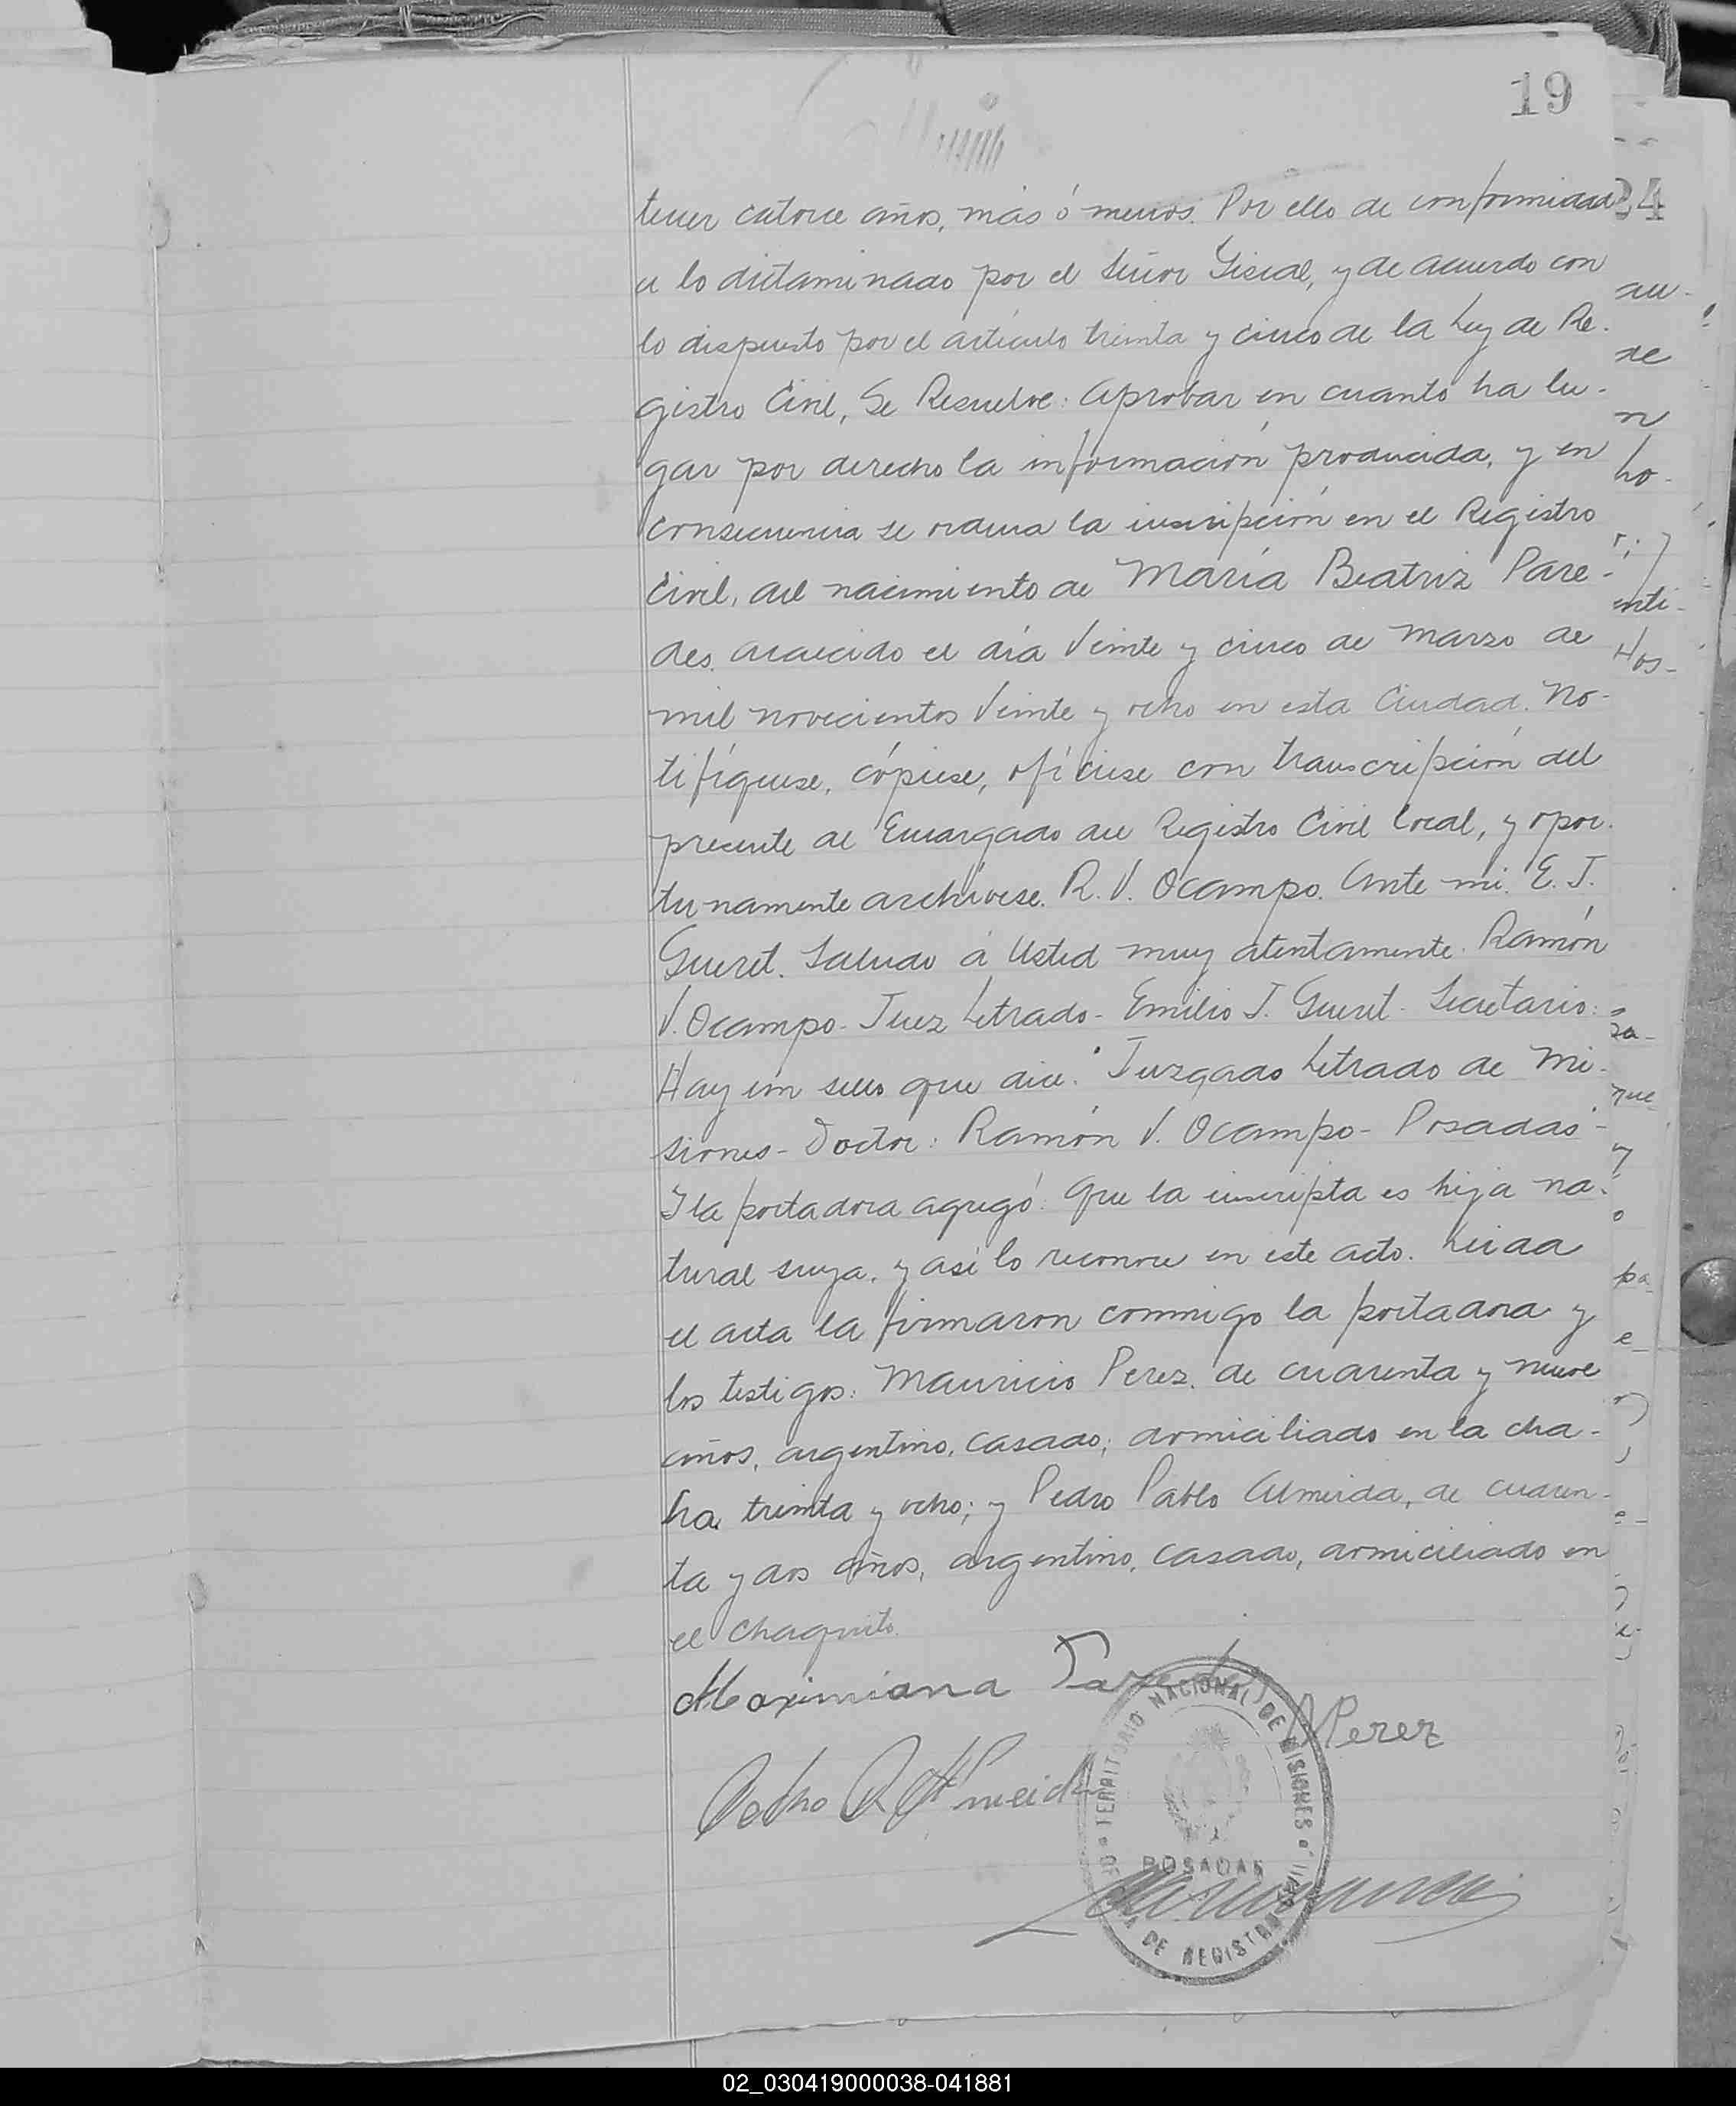 19
tener catorce años, más ó menos. Por ello de conformidad
a lo dictaminado por el Señor Fiscal, y de acuerdo con
lo dispuesto por el artículo treinta y cinco de la Ley de Re-
gistro Civil, Se Resuelve: Aprobar en cuanto ha lu-
gar por derecho la información producida, y en
consecuencia se ordena la inscripción en el Registro
Civil, del nacimiento de María Beatriz Pare-
des, acaecido el día Veinte y cinco de Marzo de
mil novecientos Veinte y ocho en esta Ciudad. No-
tifíquese, cópiese, ofíciese con transcripción del
precente al Encargado del Registro Civil local, y opor-
tunamente archívese. R. V. Ocampo. Ante mi. E. J.
Gueret. Saludo á Usted muy atentamente. Ramón
V. Ocampo - Juez Letrado - Emilio J. Gueret - Secretario:
Hay un sello que dice: "Juzgado Letrado de Mi-
siones - Doctor: Ramón V. Ocampo - Posadas" -
Y la portadora agregó: Que la inscripta es hija na-
tural suya, y así lo reconoce en este acto. Leida
el acta la firmaron conmigo la portadora y
los testigos: Mauricio Perez, de cuarenta y nueve
años, argentino, casado, domiciliado en la cha-
ha treinta y ocho; y Pedro Pablo Almeida, de cuaren-
ta y dos años, argentino, casado, domiciliado en
el Chaquito.
Maximiana Paredes
MPerez
Pedro P. Almeida
TERRITORIO NACIONAL DE MISIONES
POSADAS
DE REGISTRO
24
au-
de
n
ho-
enti-
Hos-
que
y
o
pa-
e
02_030419000038-041881